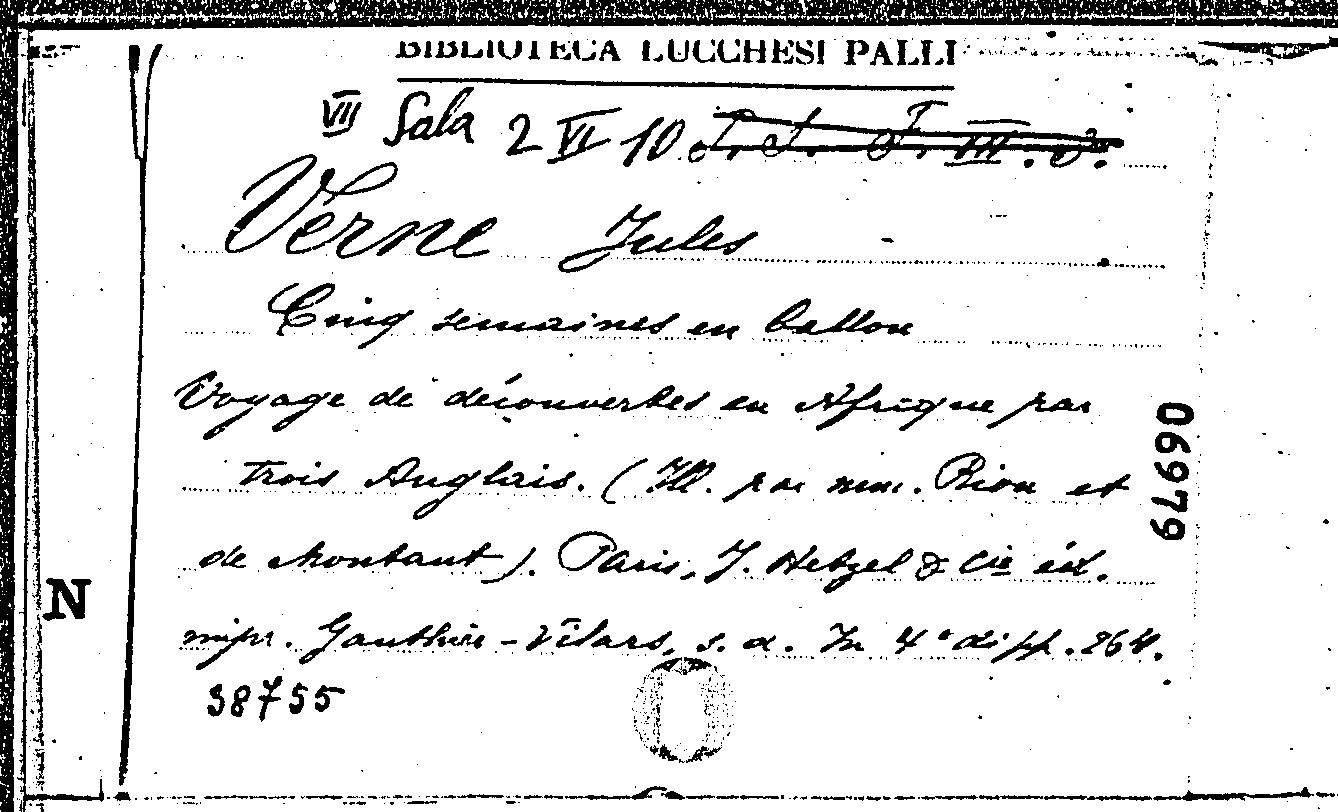 BIBLIOTECA LUCCHESI PALLI
VII Sala 2 VI 10
Verne Jules
Cinq semaines en ballon
Voyage de découvertes en Afrique par
trois Anglais. (Ill. par mm. Riou et
de Montaut). Paris, J. Hetzel & Cie éd.
impr. Gauthier-Vilars, s. d. In 4° di pp. 264.
38755
06979
N